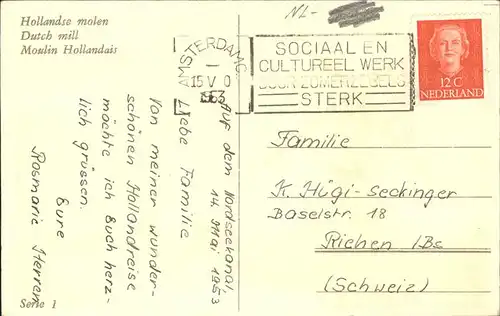 Hollandse molen
Dutch mill
Moulin Hollandais
NL-
AMSTERDAM
15 V 0
1953
SOCIAAL EN
CULTUREEL WERK
DOOR ZOMERZEGELS
STERK
12 C
NEDERLAND
Auf dem Nordseekanal,
14. Mai 1953
Liebe Familie
Von meiner wunder-
schönen Hollandreise
möchte ich Euch herz-
lich grüssen.
Eure
Rosmarie Herren
Familie
K. Hügi-Seckinger
Baselstr. 18
Riehen /Bs
(Schweiz)
Serie 1